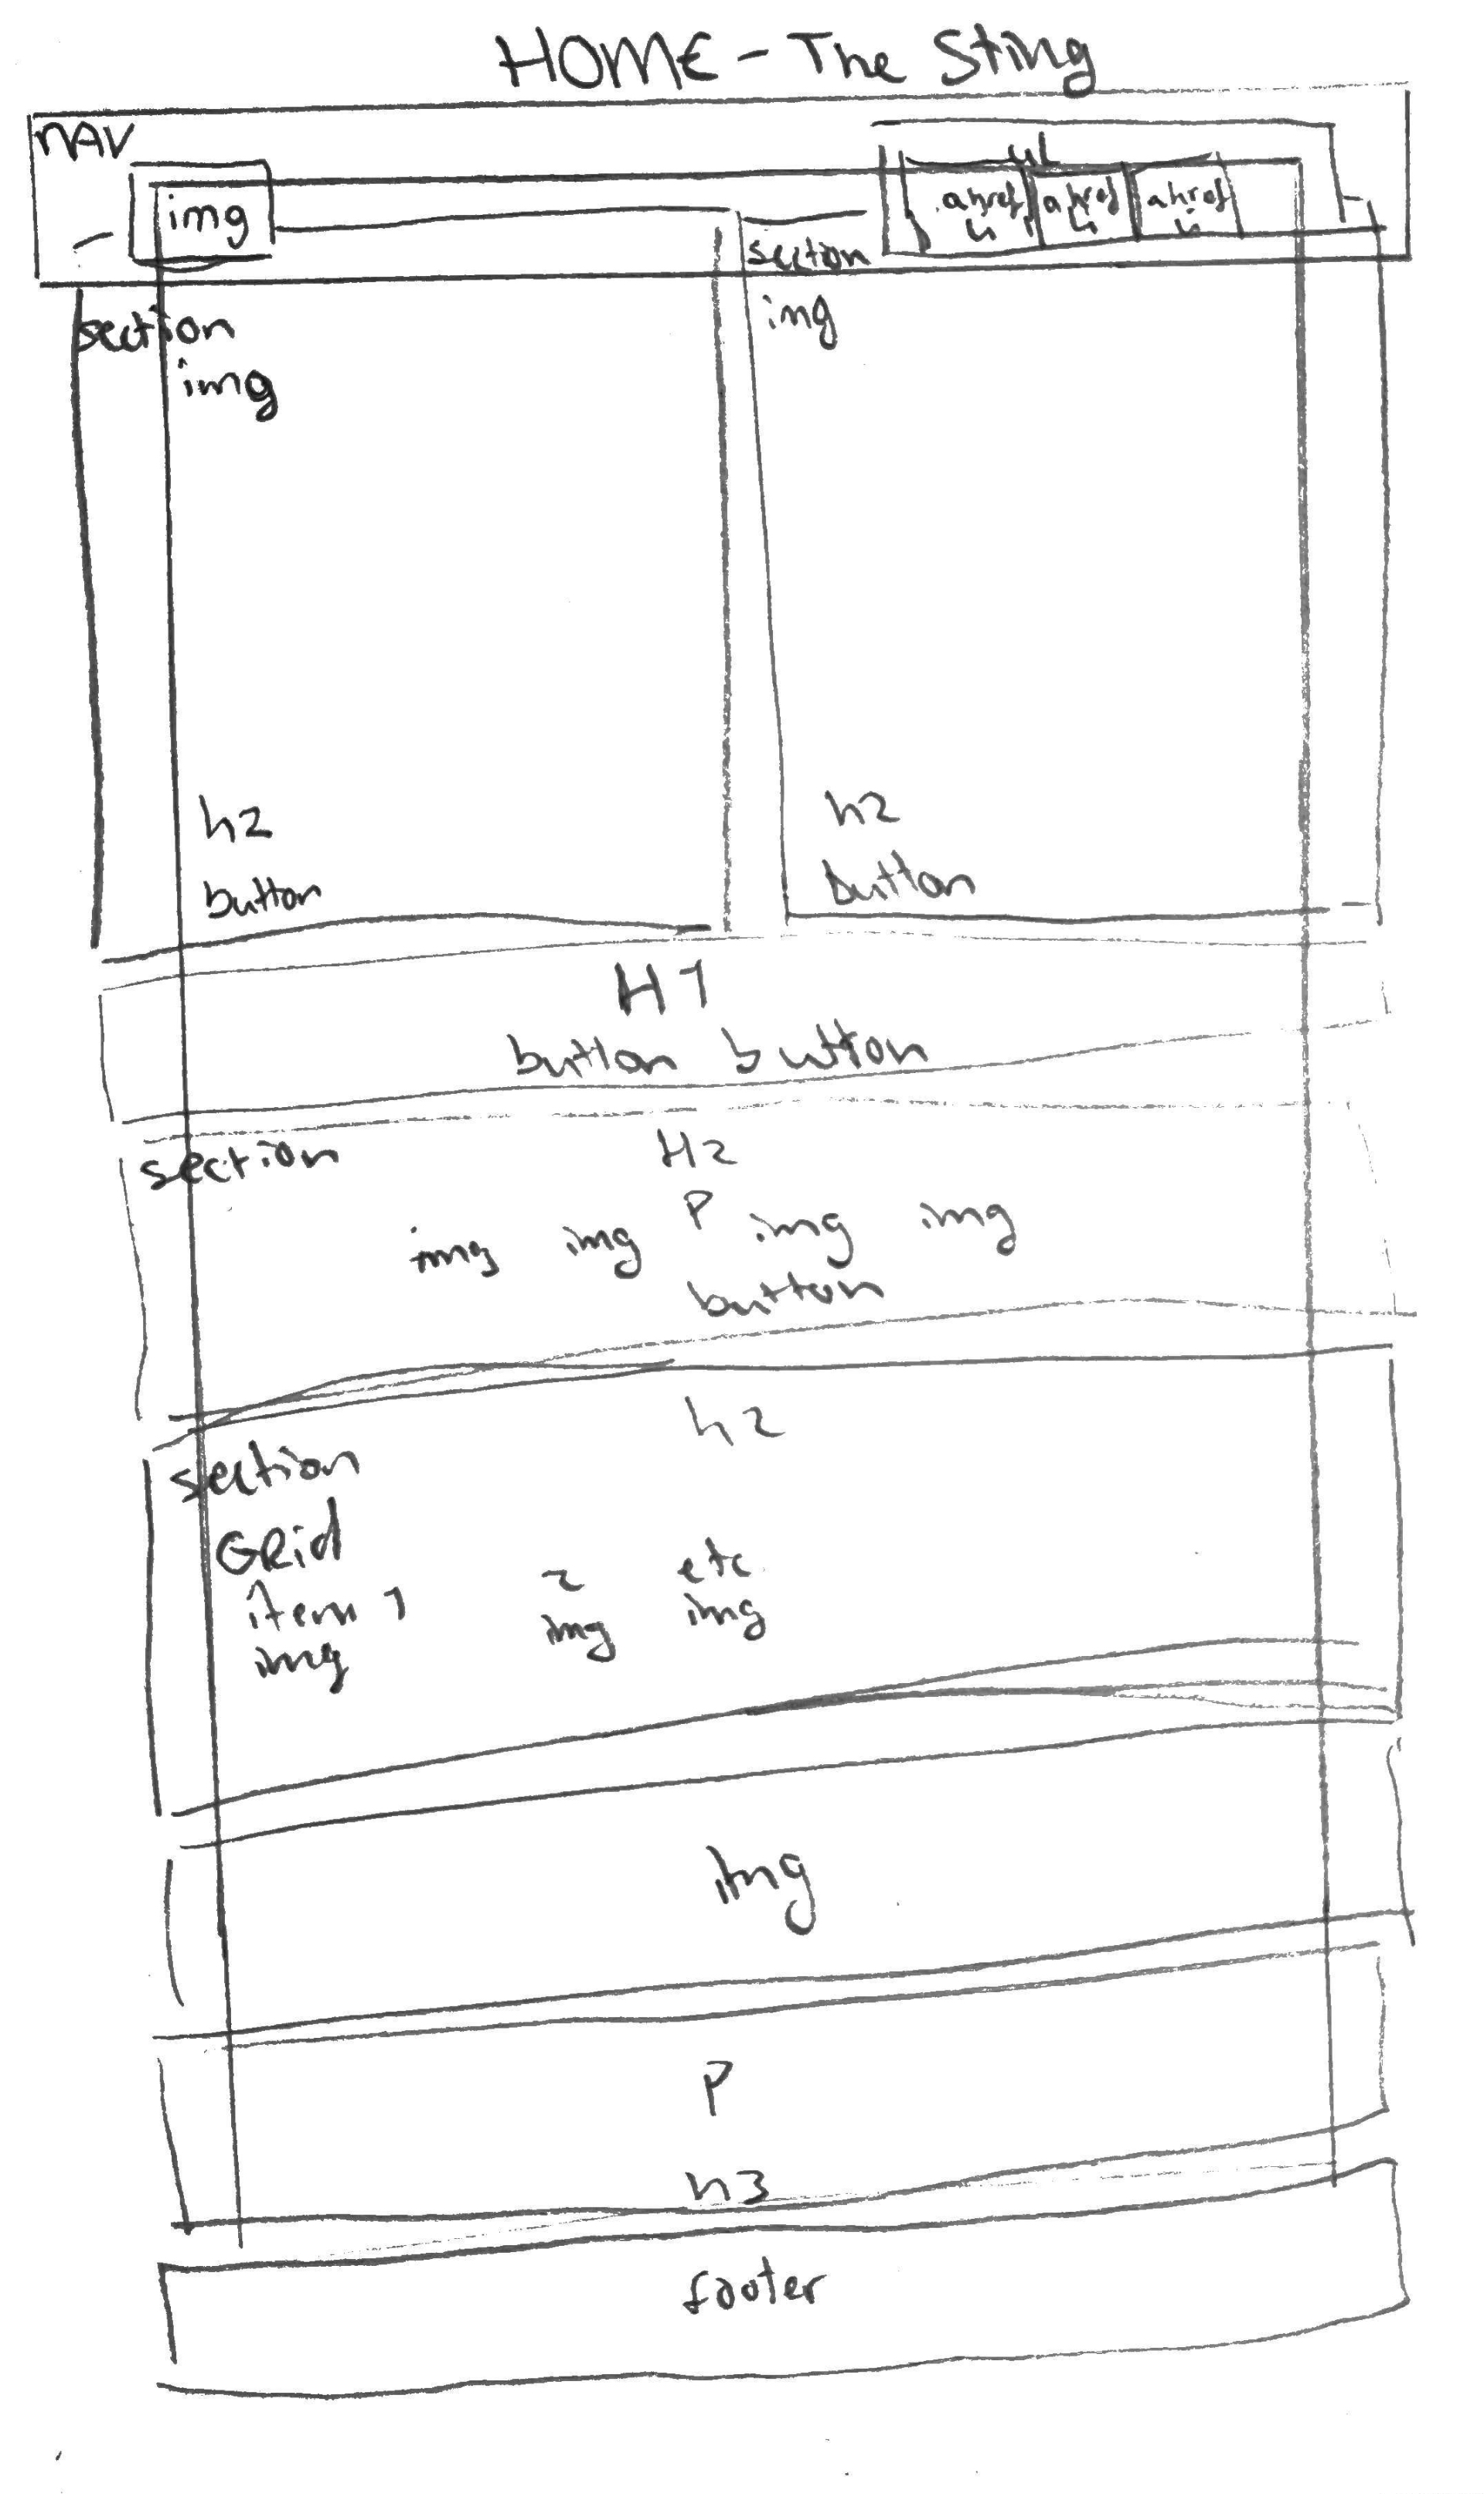 HOME - The Sting
NAV
img
ul
a href a href a href
li li li
section
img
h2
button
section
img
h2
button
H1
button button
section
H2
P
img img img img
button
h2
section
GRid
item 1 2 etc
img img img
img
P
h3
footer